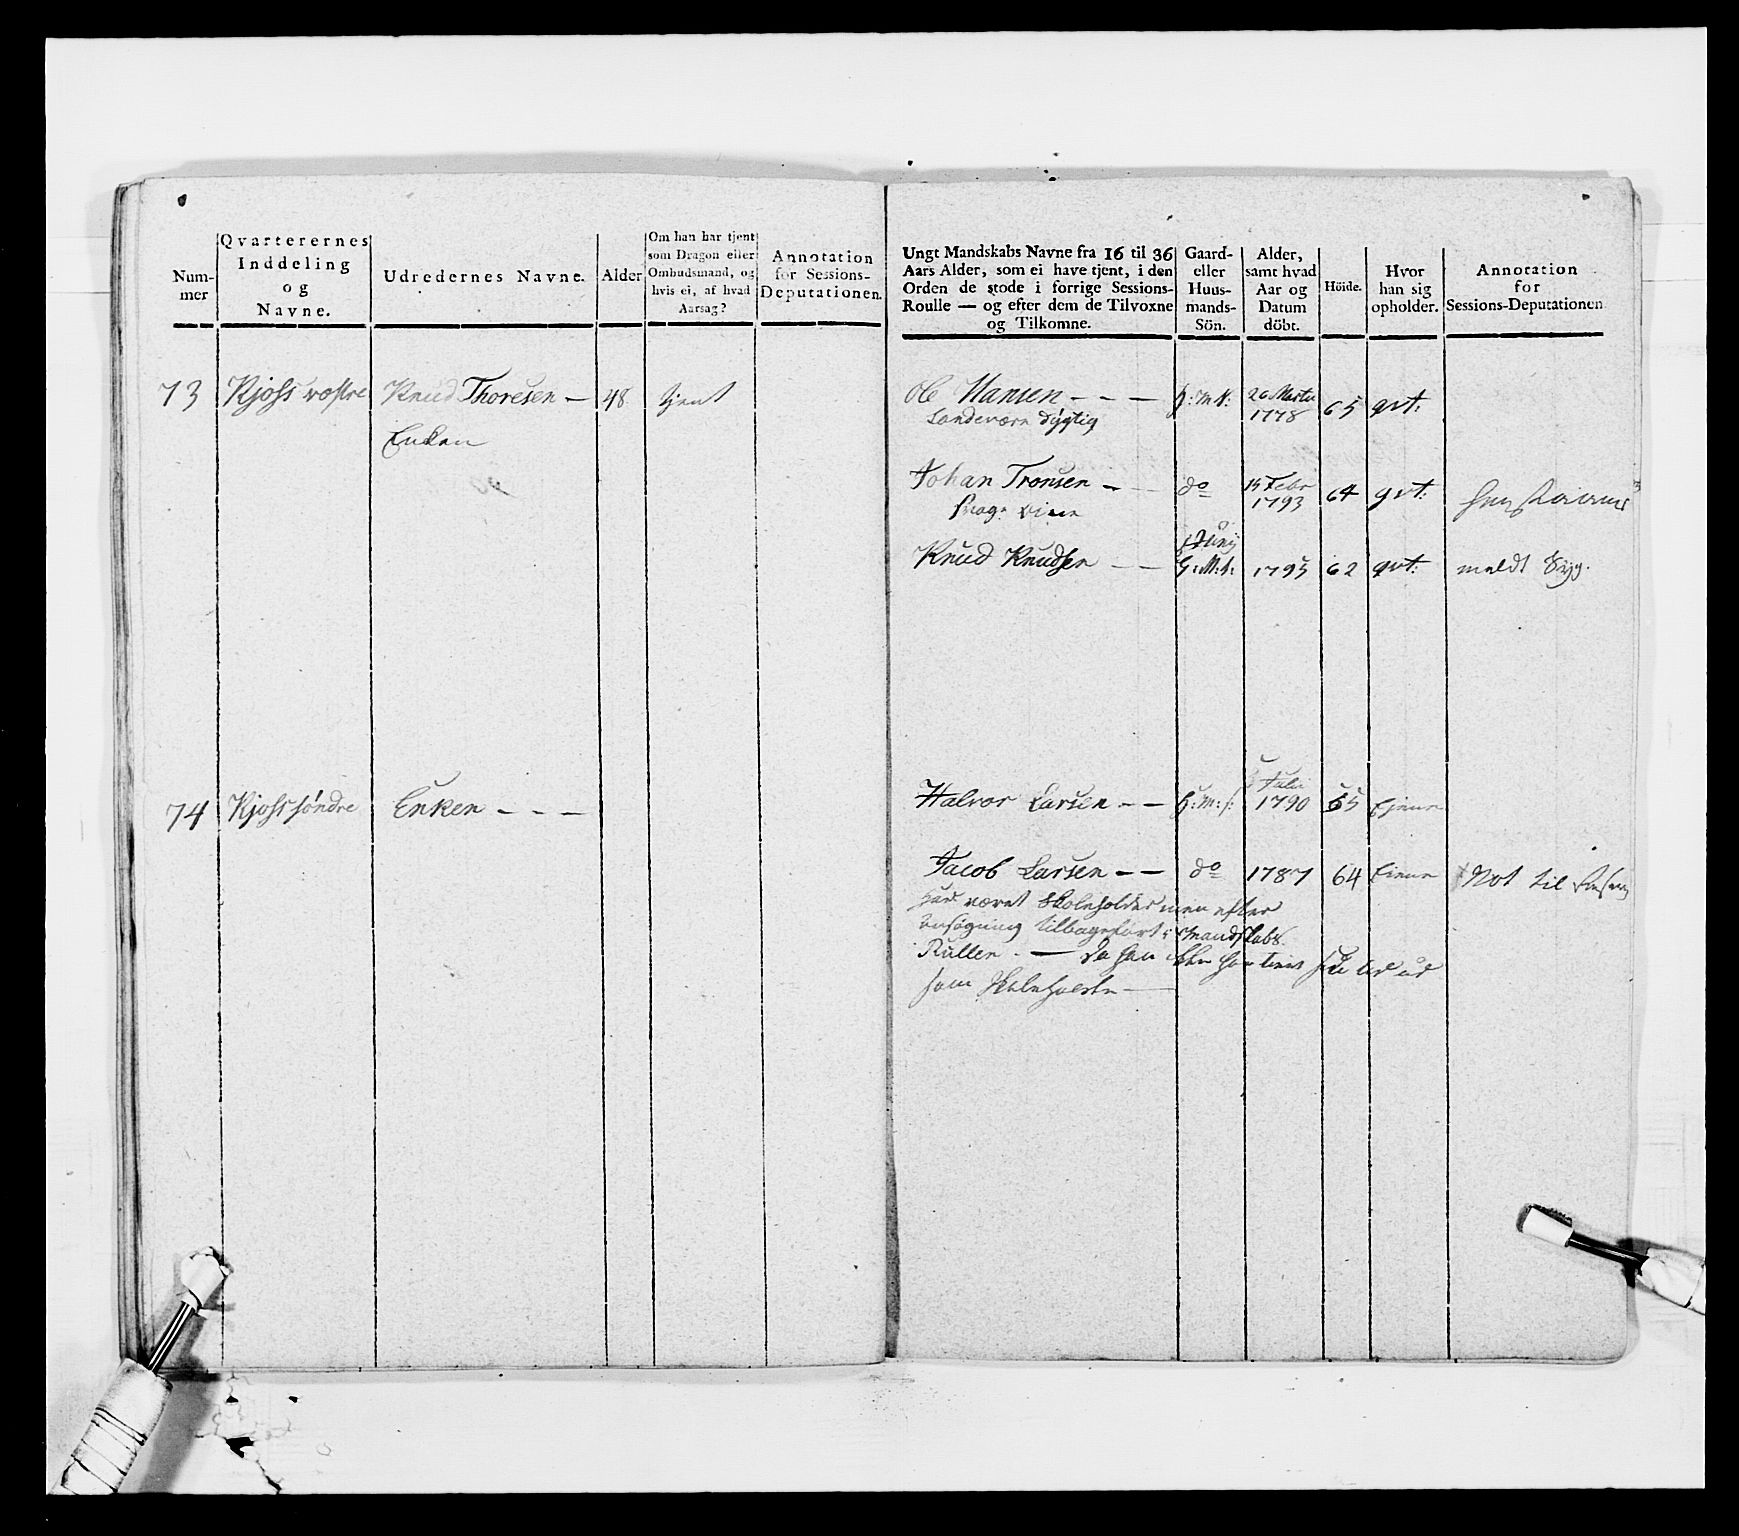 Num-
mer
Qvarterernes
Inddeling
og
Navne.
Udredernes Navne.
Alder
Om han har tjent
som Dragon eller
Ombudsmand, og
hvis ei, af hvad
Aarsag?
Annotation
for Sessions-
Deputationen.
73 Kjoss væstre Knud Thoresen — 48 tjent
Enken
74 Kjoss söndre Enken - - -
Ungt Mandskabs Navne fra 16 til 36
Aars Alder, som ei have tjent, i den
Orden de stode i forrige Sessions-
Roulle — og efter dem de Tilvoxne
og Tilkomne.
Gaard-
eller
Huus-
mands-
Sön.
Alder,
samt hvad
Aar og
Datum
döbt.
Höide.
Hvor
han sig
opholder.
Annotation
for
Sessions-Deputationen
Ole Hansen - - — 26 Martii
1778 65 qvt:
Landeværn dÿgtig
Johan Tronsen - — do 15 Febr
1793 64 qvt:
Knud Knudsen — — Junÿ
G: M: s: 1795 62 qvt: meldt Sÿg.
Halvor Larsen — — H: M: s: Julii
1790 65
Jacob Larsen — — do 1787 64 Not til
har været Skoleholder men efter
ansøgning tilbageført i Mandskabs
Rullen. — da han
som Skoleholder —